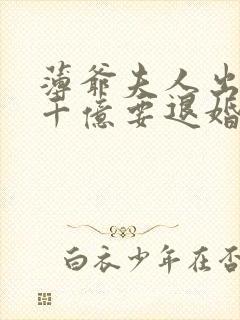 薄爷夫人出
十亿要退婚
白衣少年在否